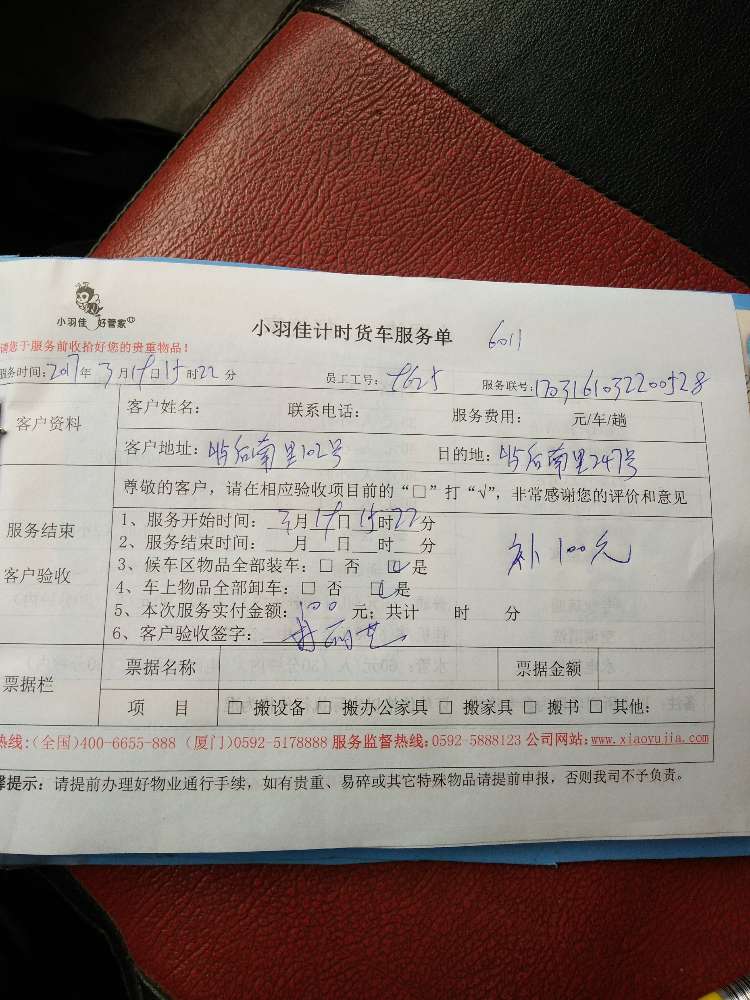 小羽佳 好管家
小羽佳计时货车服务单 6011
请您于服务前收拾好您的贵重物品!
服务时间: 2017年3月19日15时22分 员工工号: 9625 服务联号: 1703161032200528
客户资料
客户姓名: 联系电话: 服务费用: 元/车/趟
客户地址: 后南里102号 目的地: 后南里247号
服务结束
客户验收
尊敬的客户,请在相应验收项目前的“□”打“√”,非常感谢您的评价和意见
1、服务开始时间: 3月19日15时22分
2、服务结束时间: 月 日 时 分
补100元
3、候车区物品全部装车: □ 否 ☑是
4、车上物品全部卸车: □ 否 ☑是
5、本次服务实付金额: 100 元; 共计 时 分
6、客户验收签字:
票据栏
票据名称 票据金额
项 目 □ 搬设备 □ 搬办公家具 □ 搬家具 □ 搬书 □ 其他:
热线:(全国)400-6655-888 (厦门)0592-5178888 服务监督热线:0592-5888123 公司网站: www.xiaoyujia.com
提示: 请提前办理好物业通行手续,如有贵重、易碎或其它特殊物品请提前申报,否则我司不予负责。